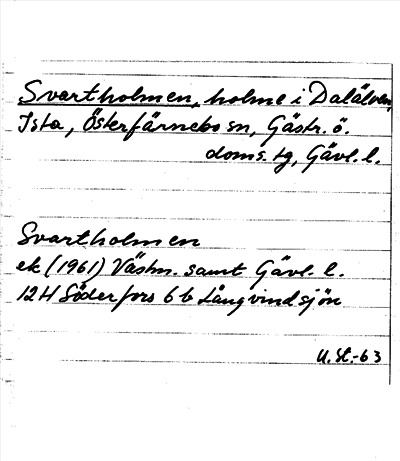 Svartholmen, holme i Dalälven,
Ista, Österfärnebo sn, Gästr. ö.
doms. tg, Gävl. l.
Svartholmen
ek (1961) Västm. samt Gävl. l.
12H Söderfors 6b Långvindsjön
U. St.-63